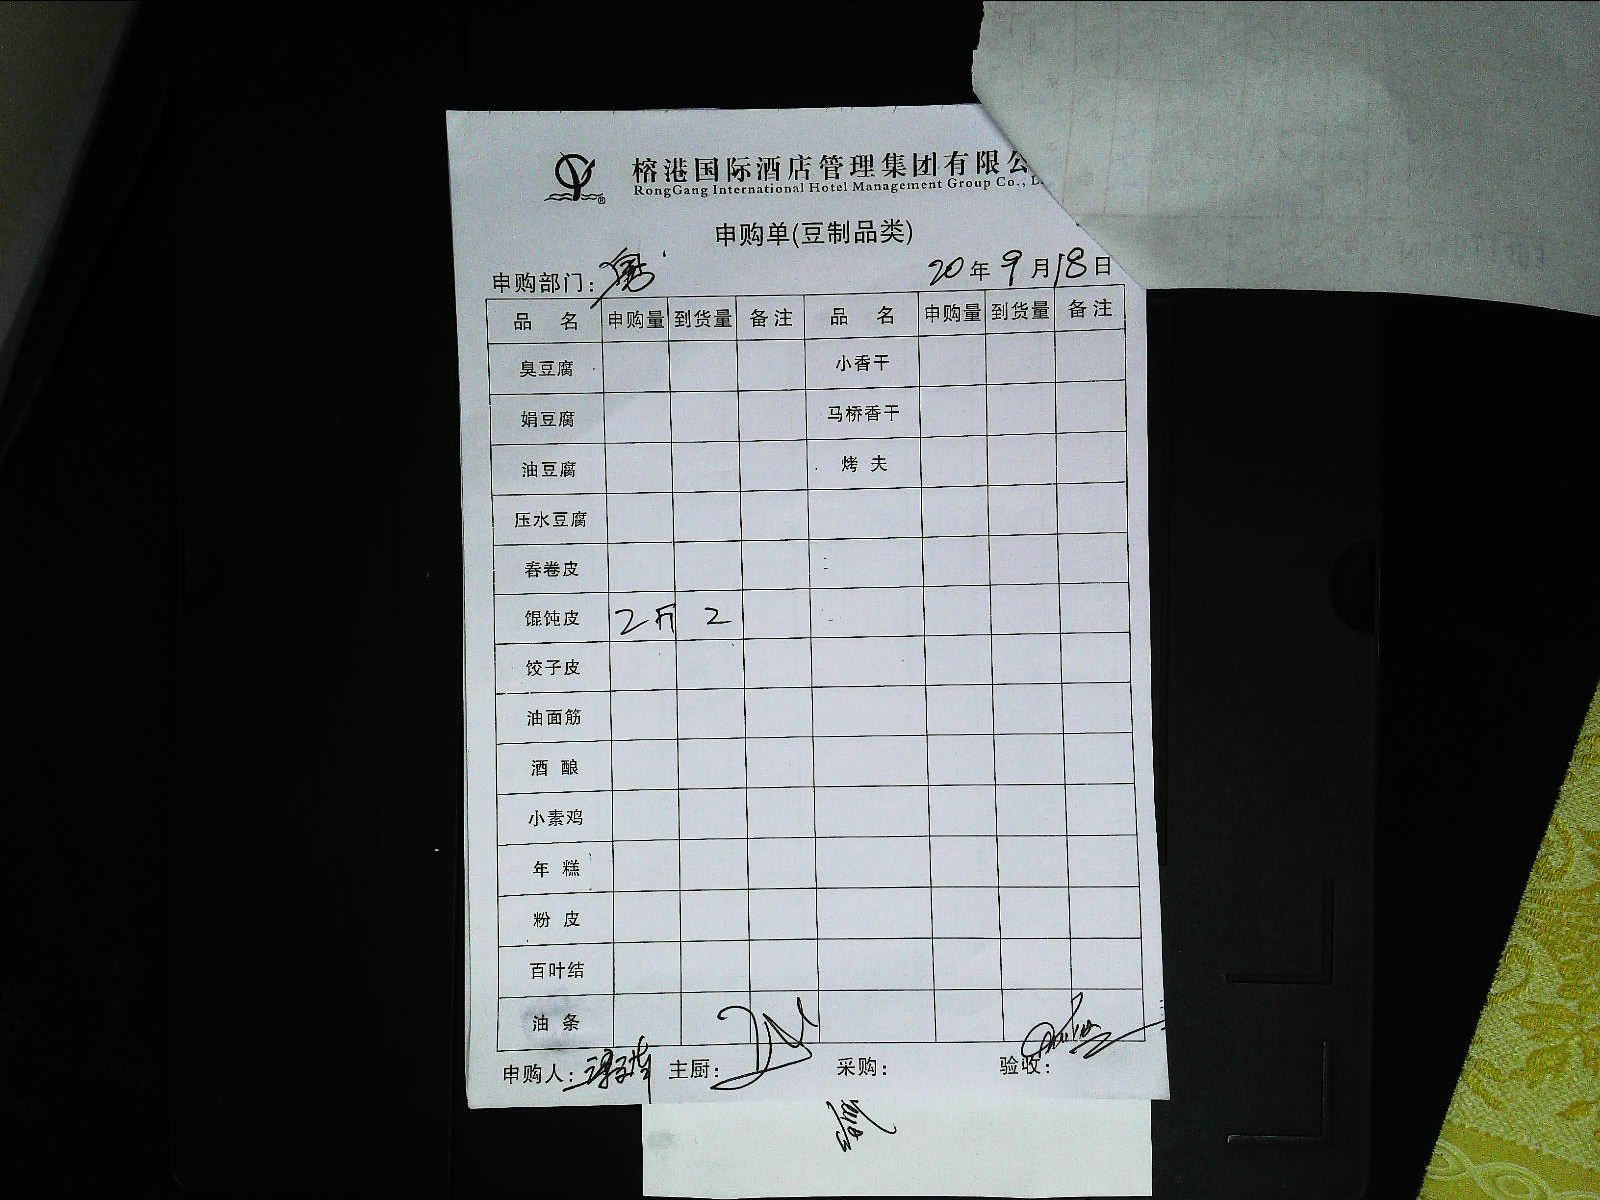 榕港国际酒店管理集团有限公
RongGang International Hotel Management Group Co.,
申购单(豆制品类)
申购部门:
20年9月18日
品 名 申购量 到货量 备注 品 名 申购量 到货量 备注
臭豆腐 小香干
娟豆腐 马桥香干
油豆腐 烤 夫
压水豆腐
春卷皮
馄饨皮 2斤 2
饺子皮
油面筋
酒 酿
小素鸡
年 糕
粉 皮
百叶结
油 条
申购人: 主厨: 采购: 验收: